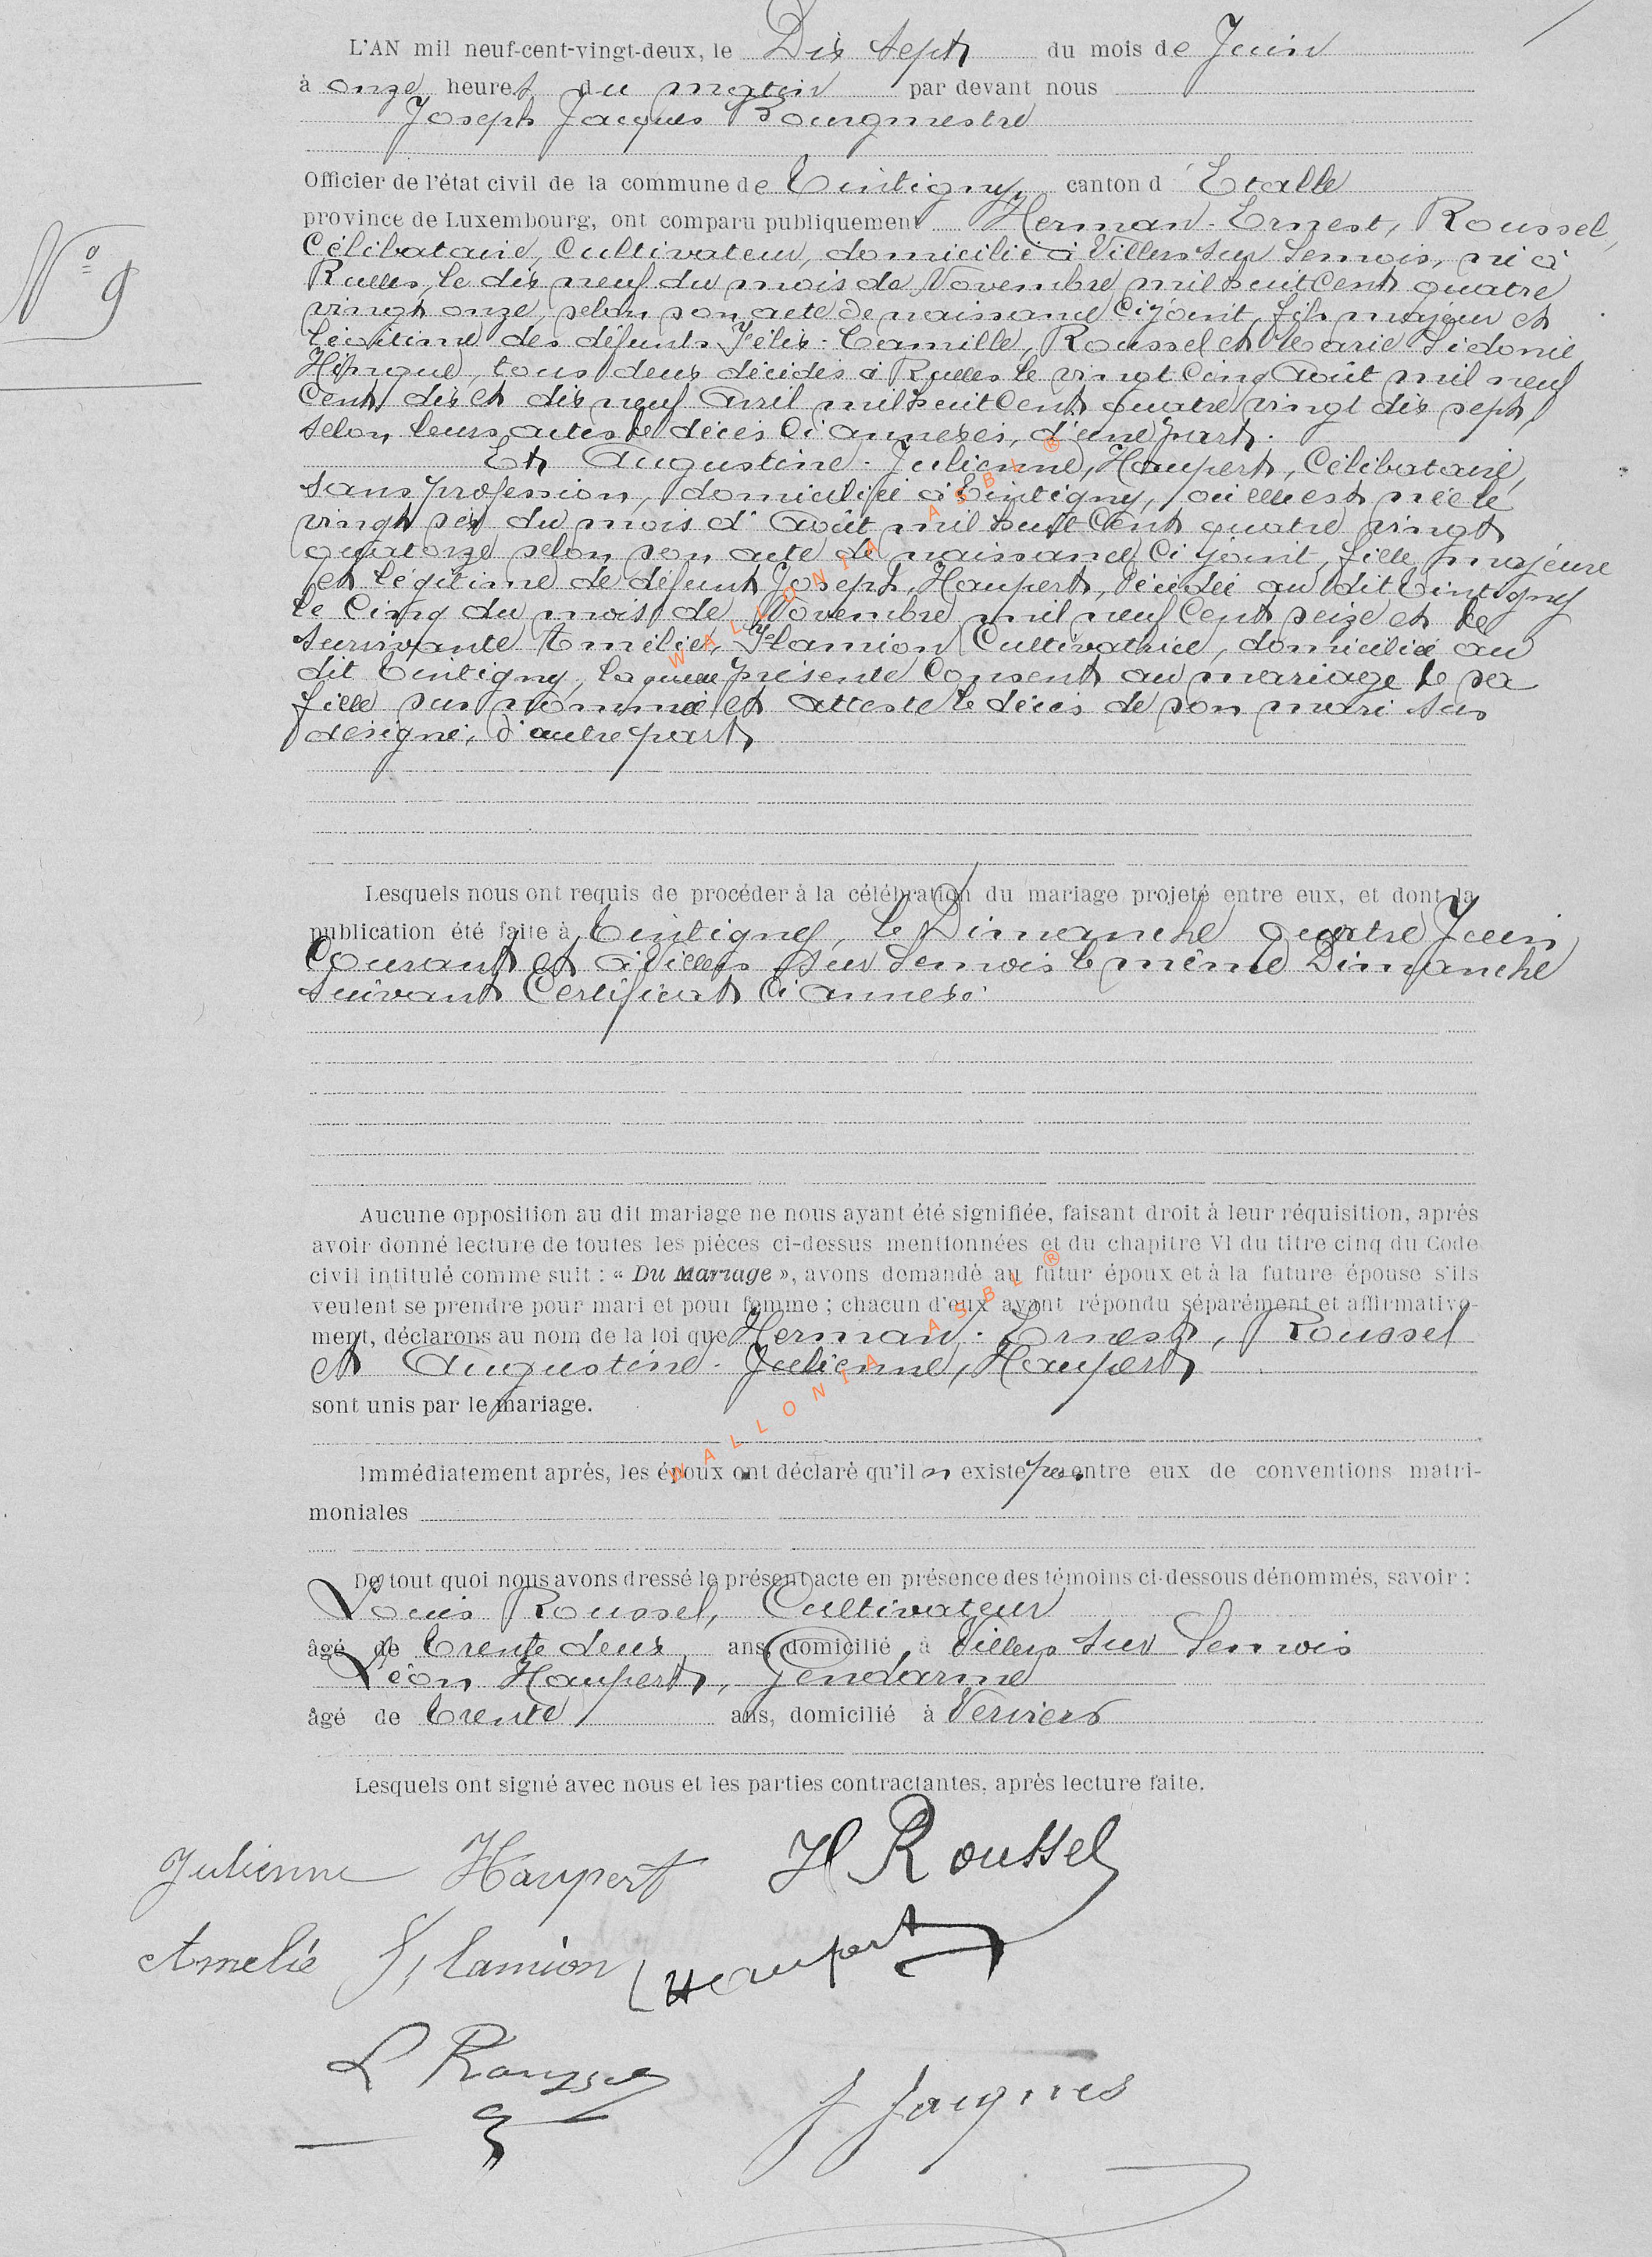 L'AN mil neuf-cent-vingt-deux, le Dix sept du mois de Juin
à onze heures du matin par devant nous
Joseph Jacques Bourgmestre
Officier de l'état civil de la commune de Tintigny, canton d'Etalle
province de Luxembourg, ont comparu publiquement Herman-Ernest, Roussel,
Célibataire, Cultivateur, domicilié à Villers sur Semois, né à
Rulles, le dix neuf du mois de Novembre mil huit Cent quatre
vingt onze, selon son acte de naissance Ci joint, fils majeur et
légitime des défunts Félix-Camille, Roussel et Marie Sidonie,
tous deux décédés à Rulles le vingt Cinq Août mil neuf
Cent dix et dix neuf Avril mil huit Cent quatre vingt dix sept,
selon leurs actes de décès Ci annexés, d'une part.
Et Augustine-Julienne, Haupert, Célibataire,
sans profession, domiciliée à Tintigny, où elle est née le
vingt six du mois d'Août mil huit Cent quatre vingt
quatorze selon son acte de naissance Ci joint, fille majeure
et légitime de défunt Joseph, Haupert, décédé au dit Tintigny
le Cinq du mois de Novembre mil neuf Cent seize et de
survivante Amélie, Flamion Cultivatrice, domiciliée au
dit Tintigny, laquelle présente Consent au mariage de sa
fille sus nommée et atteste le décès de son mari sus
désigné, d'autre part
N° 9
Lesquels nous ont requis de procéder à la célébration du mariage projeté entre eux, et dont la
publication été faite à Tintigny, le Dimanche quatre Juin
Courant et à Villers sur Semois le même Dimanche
suivant Certificat Ci annexé.
Aucune opposition au dit mariage ne nous ayant été signifiée, faisant droit à leur réquisition, après
avoir donné lecture de toutes les pièces ci-dessus mentionnées et du chapitre VI du titre cinq du Code
civil intitulé comme suit : « Du Mariage », avons demandé au futur époux et à la future épouse s'ils
veulent se prendre pour mari et pour femme ; chacun d'eux ayant répondu séparément et affirmative-
ment, déclarons au nom de la loi que Herman-Ernest, Roussel
et Augustine-Julienne, Haupert
sont unis par le mariage.
Immédiatement après, les époux ont déclaré qu'il n existe pas entre eux de conventions matri-
moniales
De tout quoi nous avons dressé le présent acte en présence des témoins ci-dessous dénommés, savoir :
Louis Roussel, Cultivateur
âgé de trente deux ans, domicilié à Villers sur Semois
Léon Haupert, Gendarme
âgé de trente ans, domicilié à Verviers
Lesquels ont signé avec nous et les parties contractantes, après lecture faite.
Julienne Haupert H Roussel
Amelie Flamion L Haupert
L Roussel
J Jacques
WALLONIA ASBL ®
WALLONIA ASBL ®